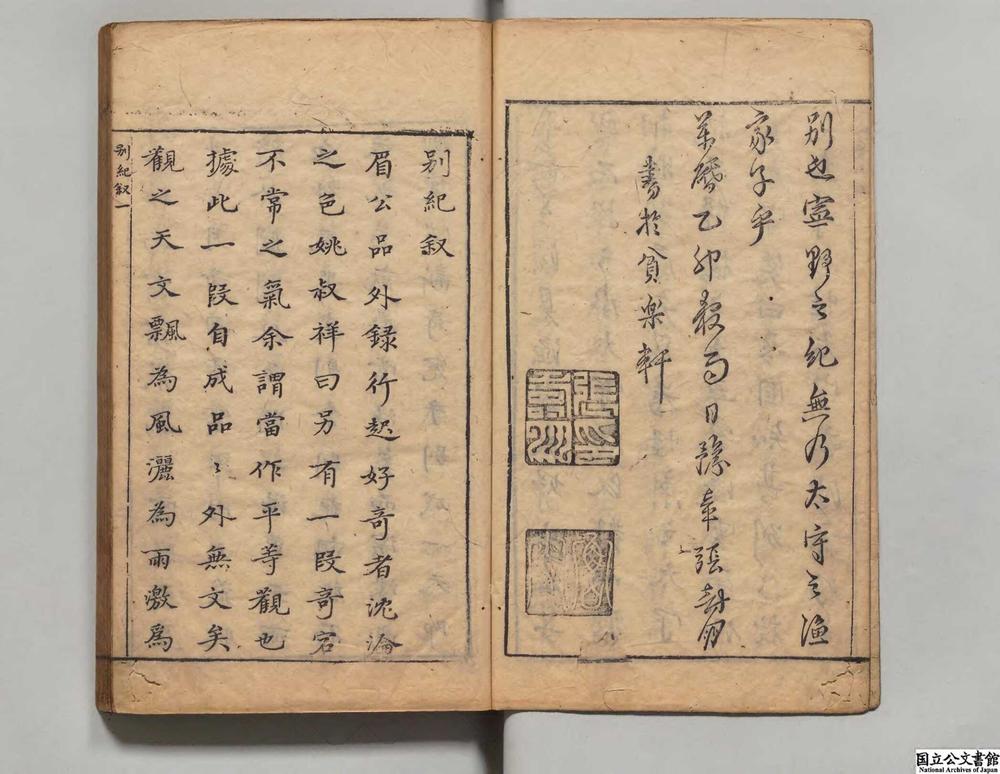 別也寧野之紀無乃太守之漁
家子乎
萬曆乙卯穀雨日豫章張壽朋
書於貧樂軒
別紀叙
眉公品外録行起好奇者沈淪
之色姚叔祥曰另有一段奇宕
不常之氣余謂當作平等觀也
據此一段自成品〻外無文矣
觀之天文飄為風灑為雨激爲
別紀叙一
国立公文書館
National Archives of Japan